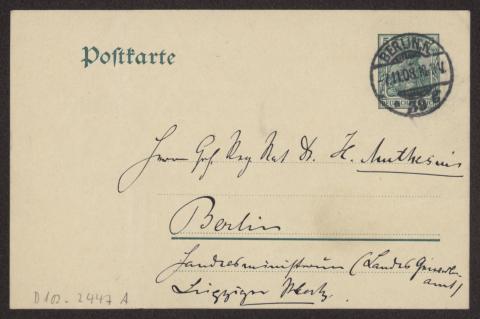 Postkarte
BERLIN.N.
7.11.08.
39
Herrn Geh. Reg Rat Dr. H. Muthesius
Berlin
Landesministerium (Landes Gewerbe-
amt)
Leipziger Platz.
D 102-2447 A